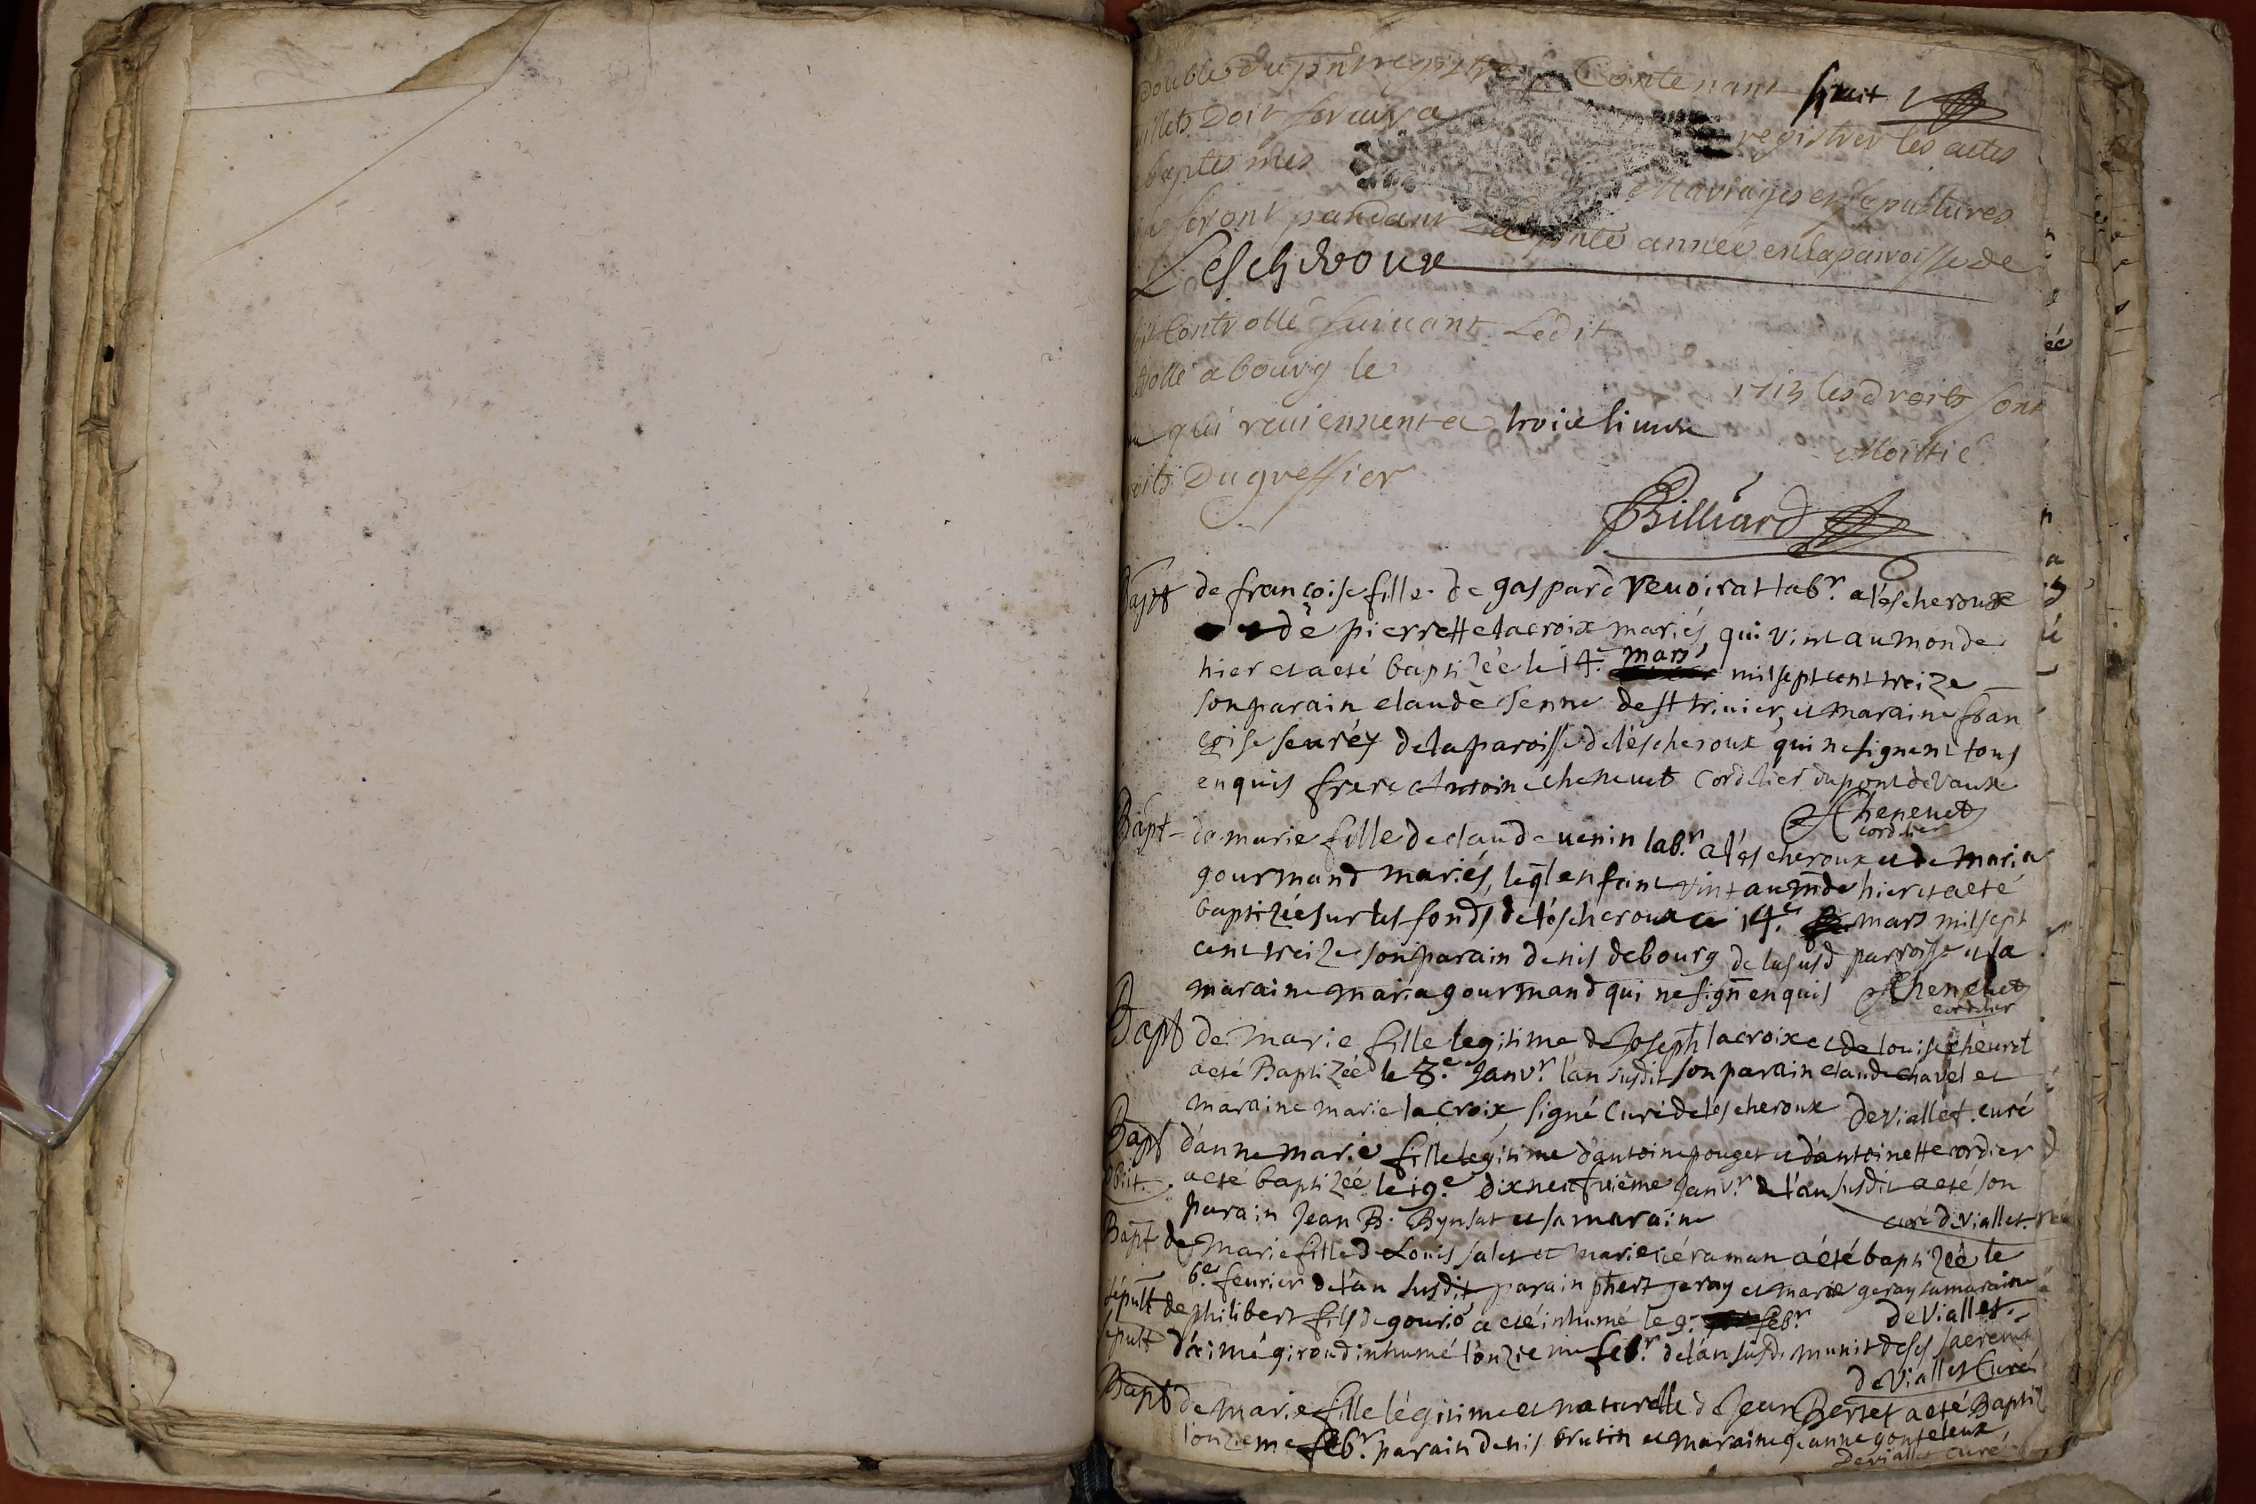 double du pnt registre Contenant huit
doit servir a registrer les actes
baptesmes Mariages et sepultures
seront pandant La pnte année en la paroisse de
Lescheroux
Controllé suivant Ledit
abourg le 1713 les droits sont
qui reviennent a troice livres Moittié
Du greffier
Billiard
Bapt de françoise fille de gaspard Revoirat labr. a léscheroux
de pierrette lacroix mariés, qui vint au monde
hier et a eté baptizée le 14e. mars mil sept cent treize
son parain claude Jenne de st trivier, et maraine fran
çoise seuréy de la paroisse de léscheroux qui ne signent tous
enquis frere Antoine chenevet Cordelier du pont de Vaux
AChenevet
cordelier
Bapt de marie fille de claude venin labr. a léscheroux et de Maria
gourmand mariés, leql enfant vint au mde hier et a eté
baptizée sur les fonds de léscheroux ce 14.e mars mil sept
cent treize son parain denis debourg de la susd parroisse et sa
maraine maria gourmand qui ne sign enquis AChenevet
cordelier
Bapt de Marie fille legitime de Joseph lacroix et de louise chévret
a eté Baptizée le 8.e Janvr. lan susdit son parain claude chavel et
maraine marie la croix signé Curé de léscheroux deviallet. curé
Bapt d'anne marie fille legitime d'antoine pouget et d'antoinette cordier
obiit. a eté baptizée le 19.e dixneufvieme Janvr. de l'an susdit a eté son
parain Jean B. Bynsat et sa maraine curé deviallet.
Bapt de Marie fille de Louis salet et marie a été baptizée le
6.e fevrier de l'an susdit, parain phert geray et marie geray sa maraine
sépult de philibert fils de gourio a eté inhumé le 9. febr. deviallet.
sepult d'aimé giroud inhumé l'onzieme febr. de l'an susd. munit de ses sacremts
deviallet Curé
Bapt de Marie fille légitime et naturelle de Jean Bernet a eté Baptiz
l'onzieme febr. parain denis brutin et maraine jeanne
deviallet curé